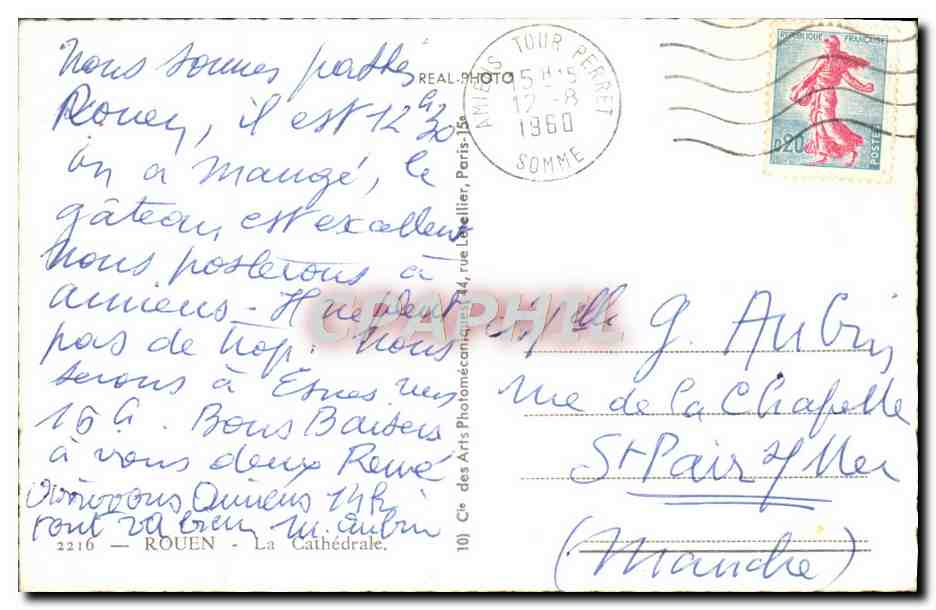 Nous sommes passés
Rouen, il est 12h30
on a mangé, le
gâteau est excellent
Nous posterons à
amiens - Il ne pleut
pas de trop. Nous
serons à Esnes vers
16 h. Bons Baisers
à vous deux René
Amiens 14h
tout va bien M. Aubin
2216 — ROUEN - La Cathédrale.
REAL-PHOTO
10) Cie des Arts Photomécaniques, 44, rue Letellier, Paris-15e
AMIENS TOUR PERRET
15 H 15
12 -8
1960
SOMME
REPUBLIQUE FRANÇAISE
0,20
POSTES
CPAPHIL
Mlle G. Aubin
rue de la Chapelle
St Pair s/Mer
(Manche)